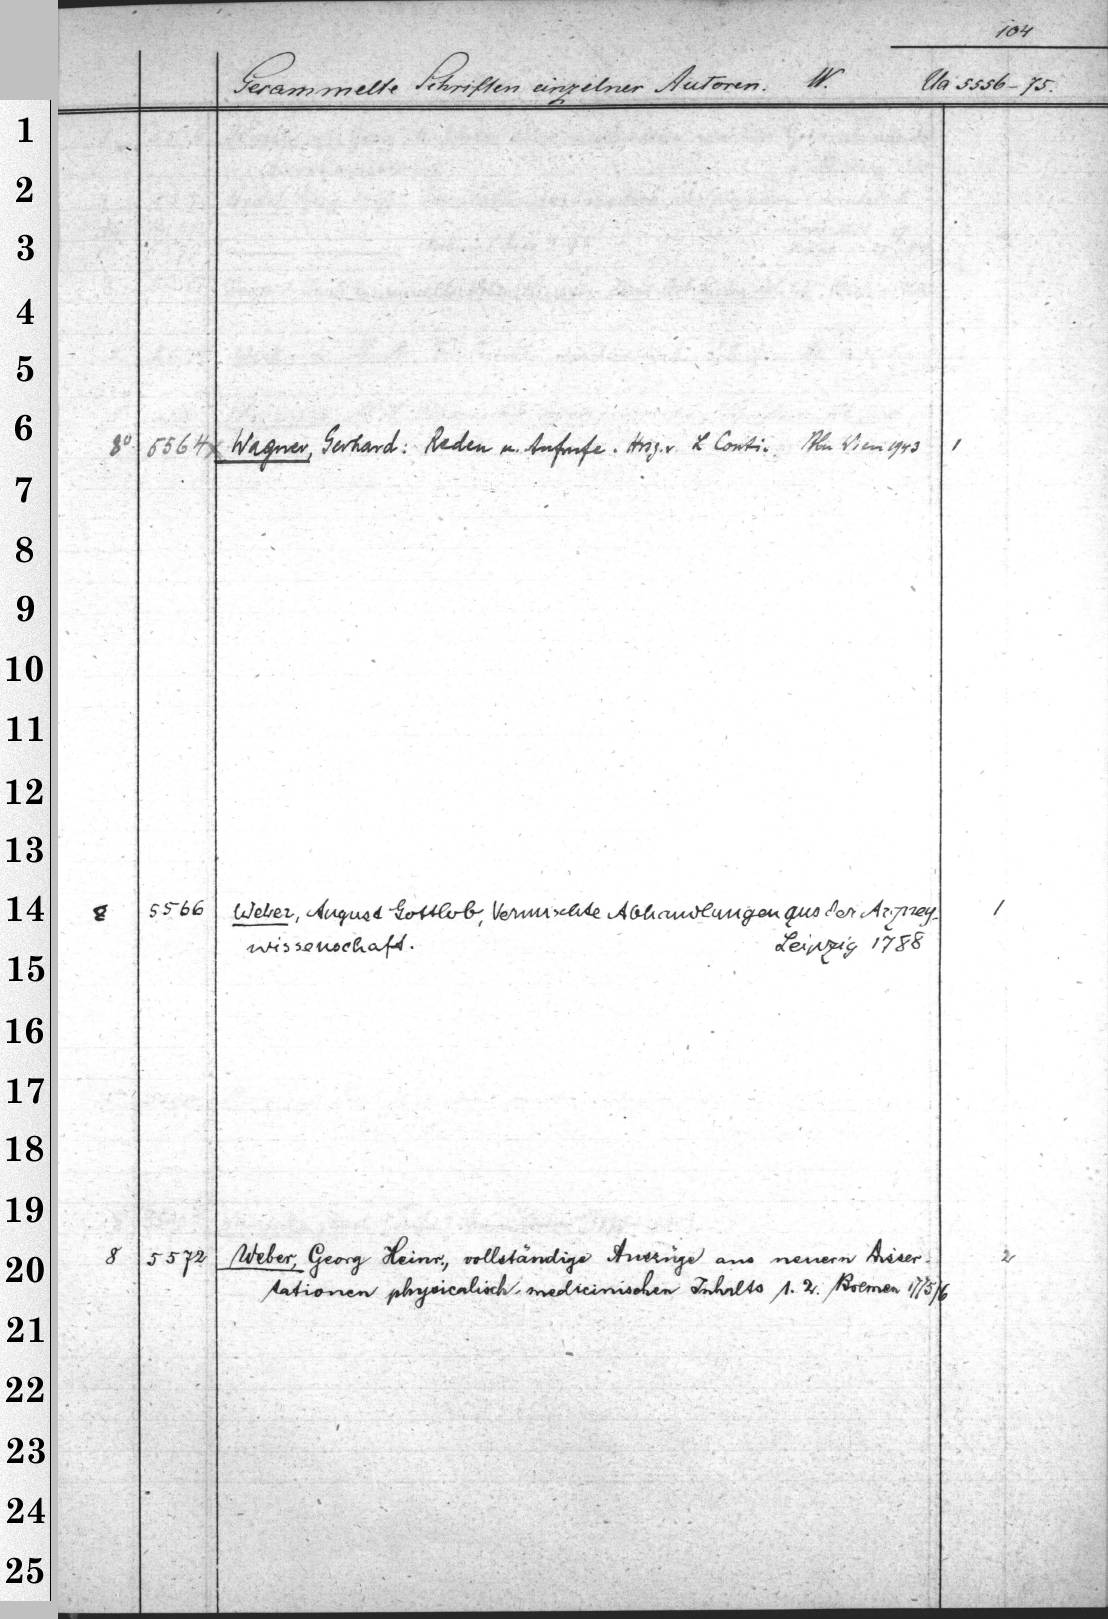 104
Gesammelte Schriften einzelner Autoren. W. Ua 5556-75.
1
2
3
4
5
6
8° 5564x Wagner, Gerhard: Reden u. Aufrufe. Hrsg. v. L Conti. Bln Wien 1943 1
7
8
9
10
11
12
13
14
8 5566 Weber, August Gottlob, Vermischte Abhandlungen aus der Arzney-
1
wissenschaft. Leipzig 1788
15
16
17
18
19
8 5572 Weber, Georg Heinr., vollständige Auszüge aus neuern Disser-
2
20
tationen physicalisch-medicinischen Inhalts 1. 2. Bremen 1775/6
21
22
23
24
25